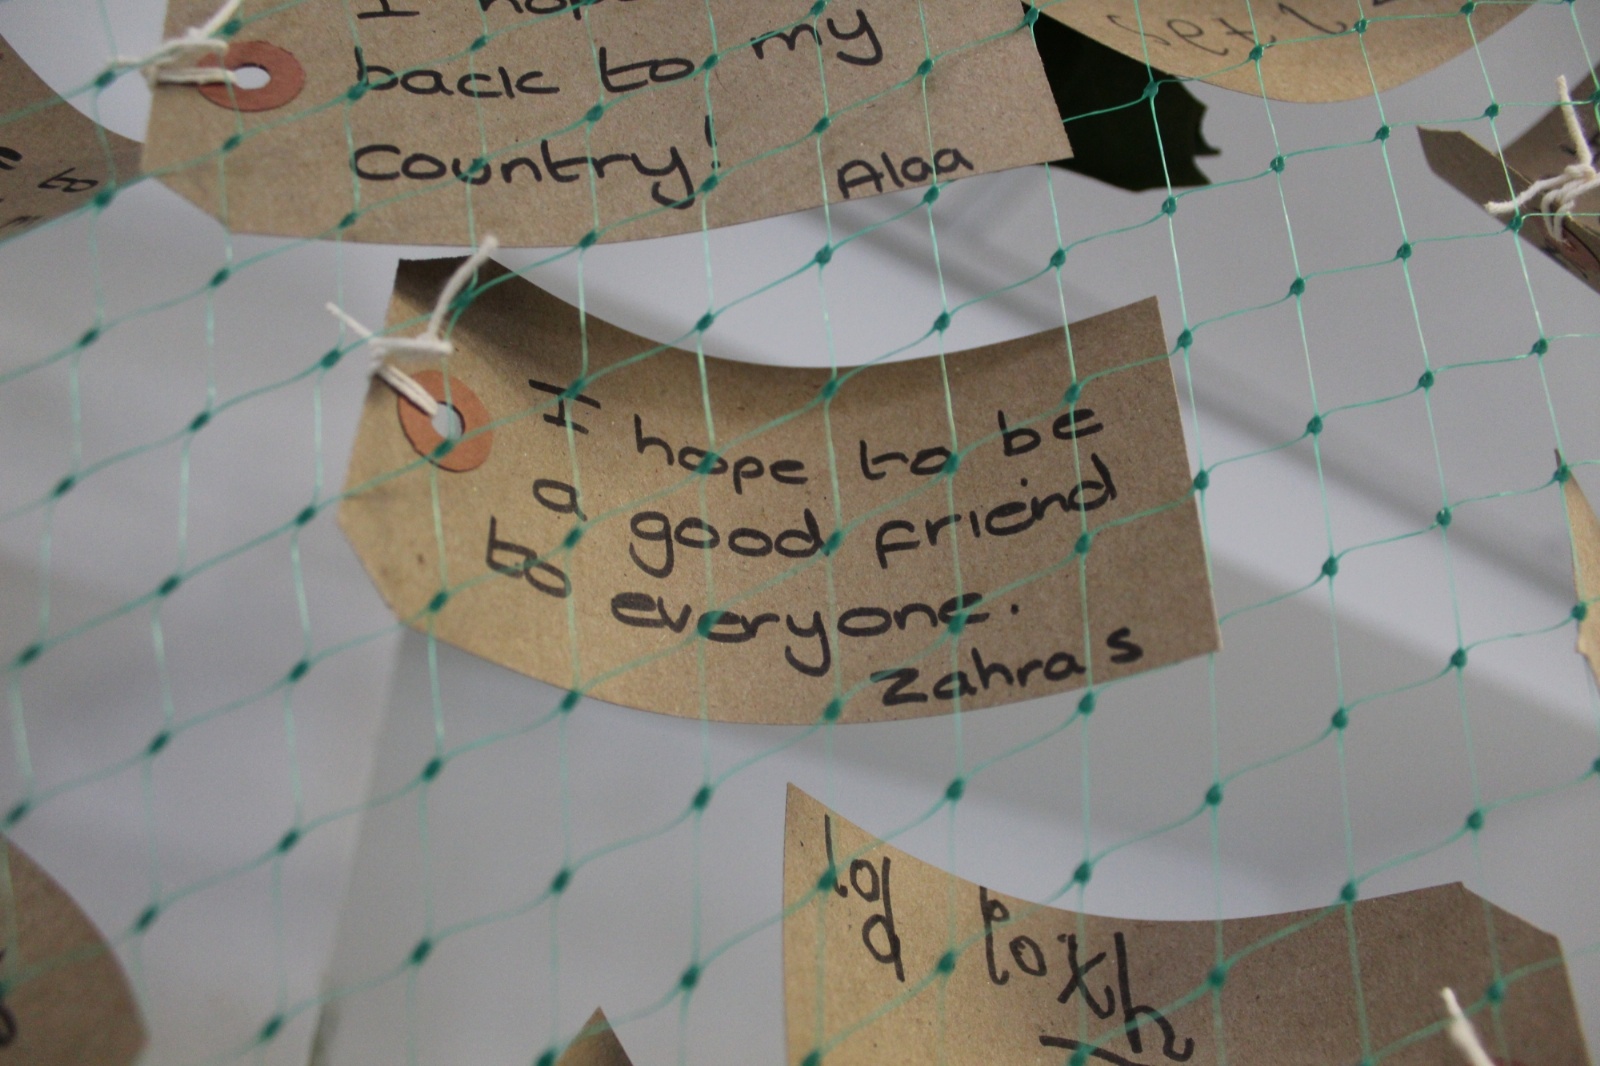 I hop
back to my
country!
Alaa
I hope to be
a good friend
to everyone.
Zahra S
to